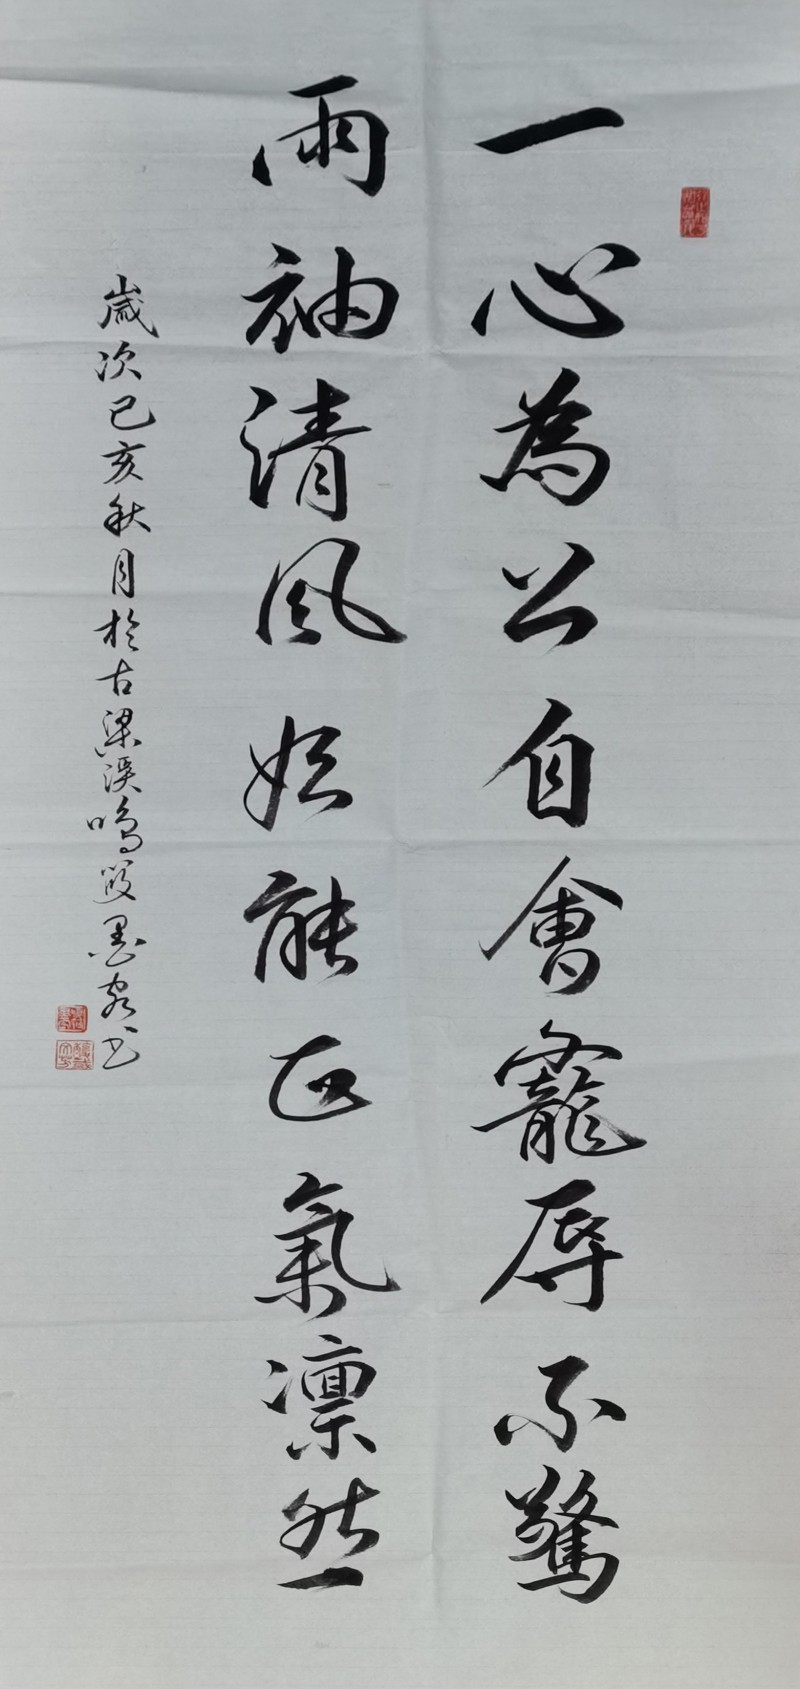 一心為公自會寵辱不驚
兩袖清風始能正氣凛然
歲次己亥秋月於古梁溪鳴